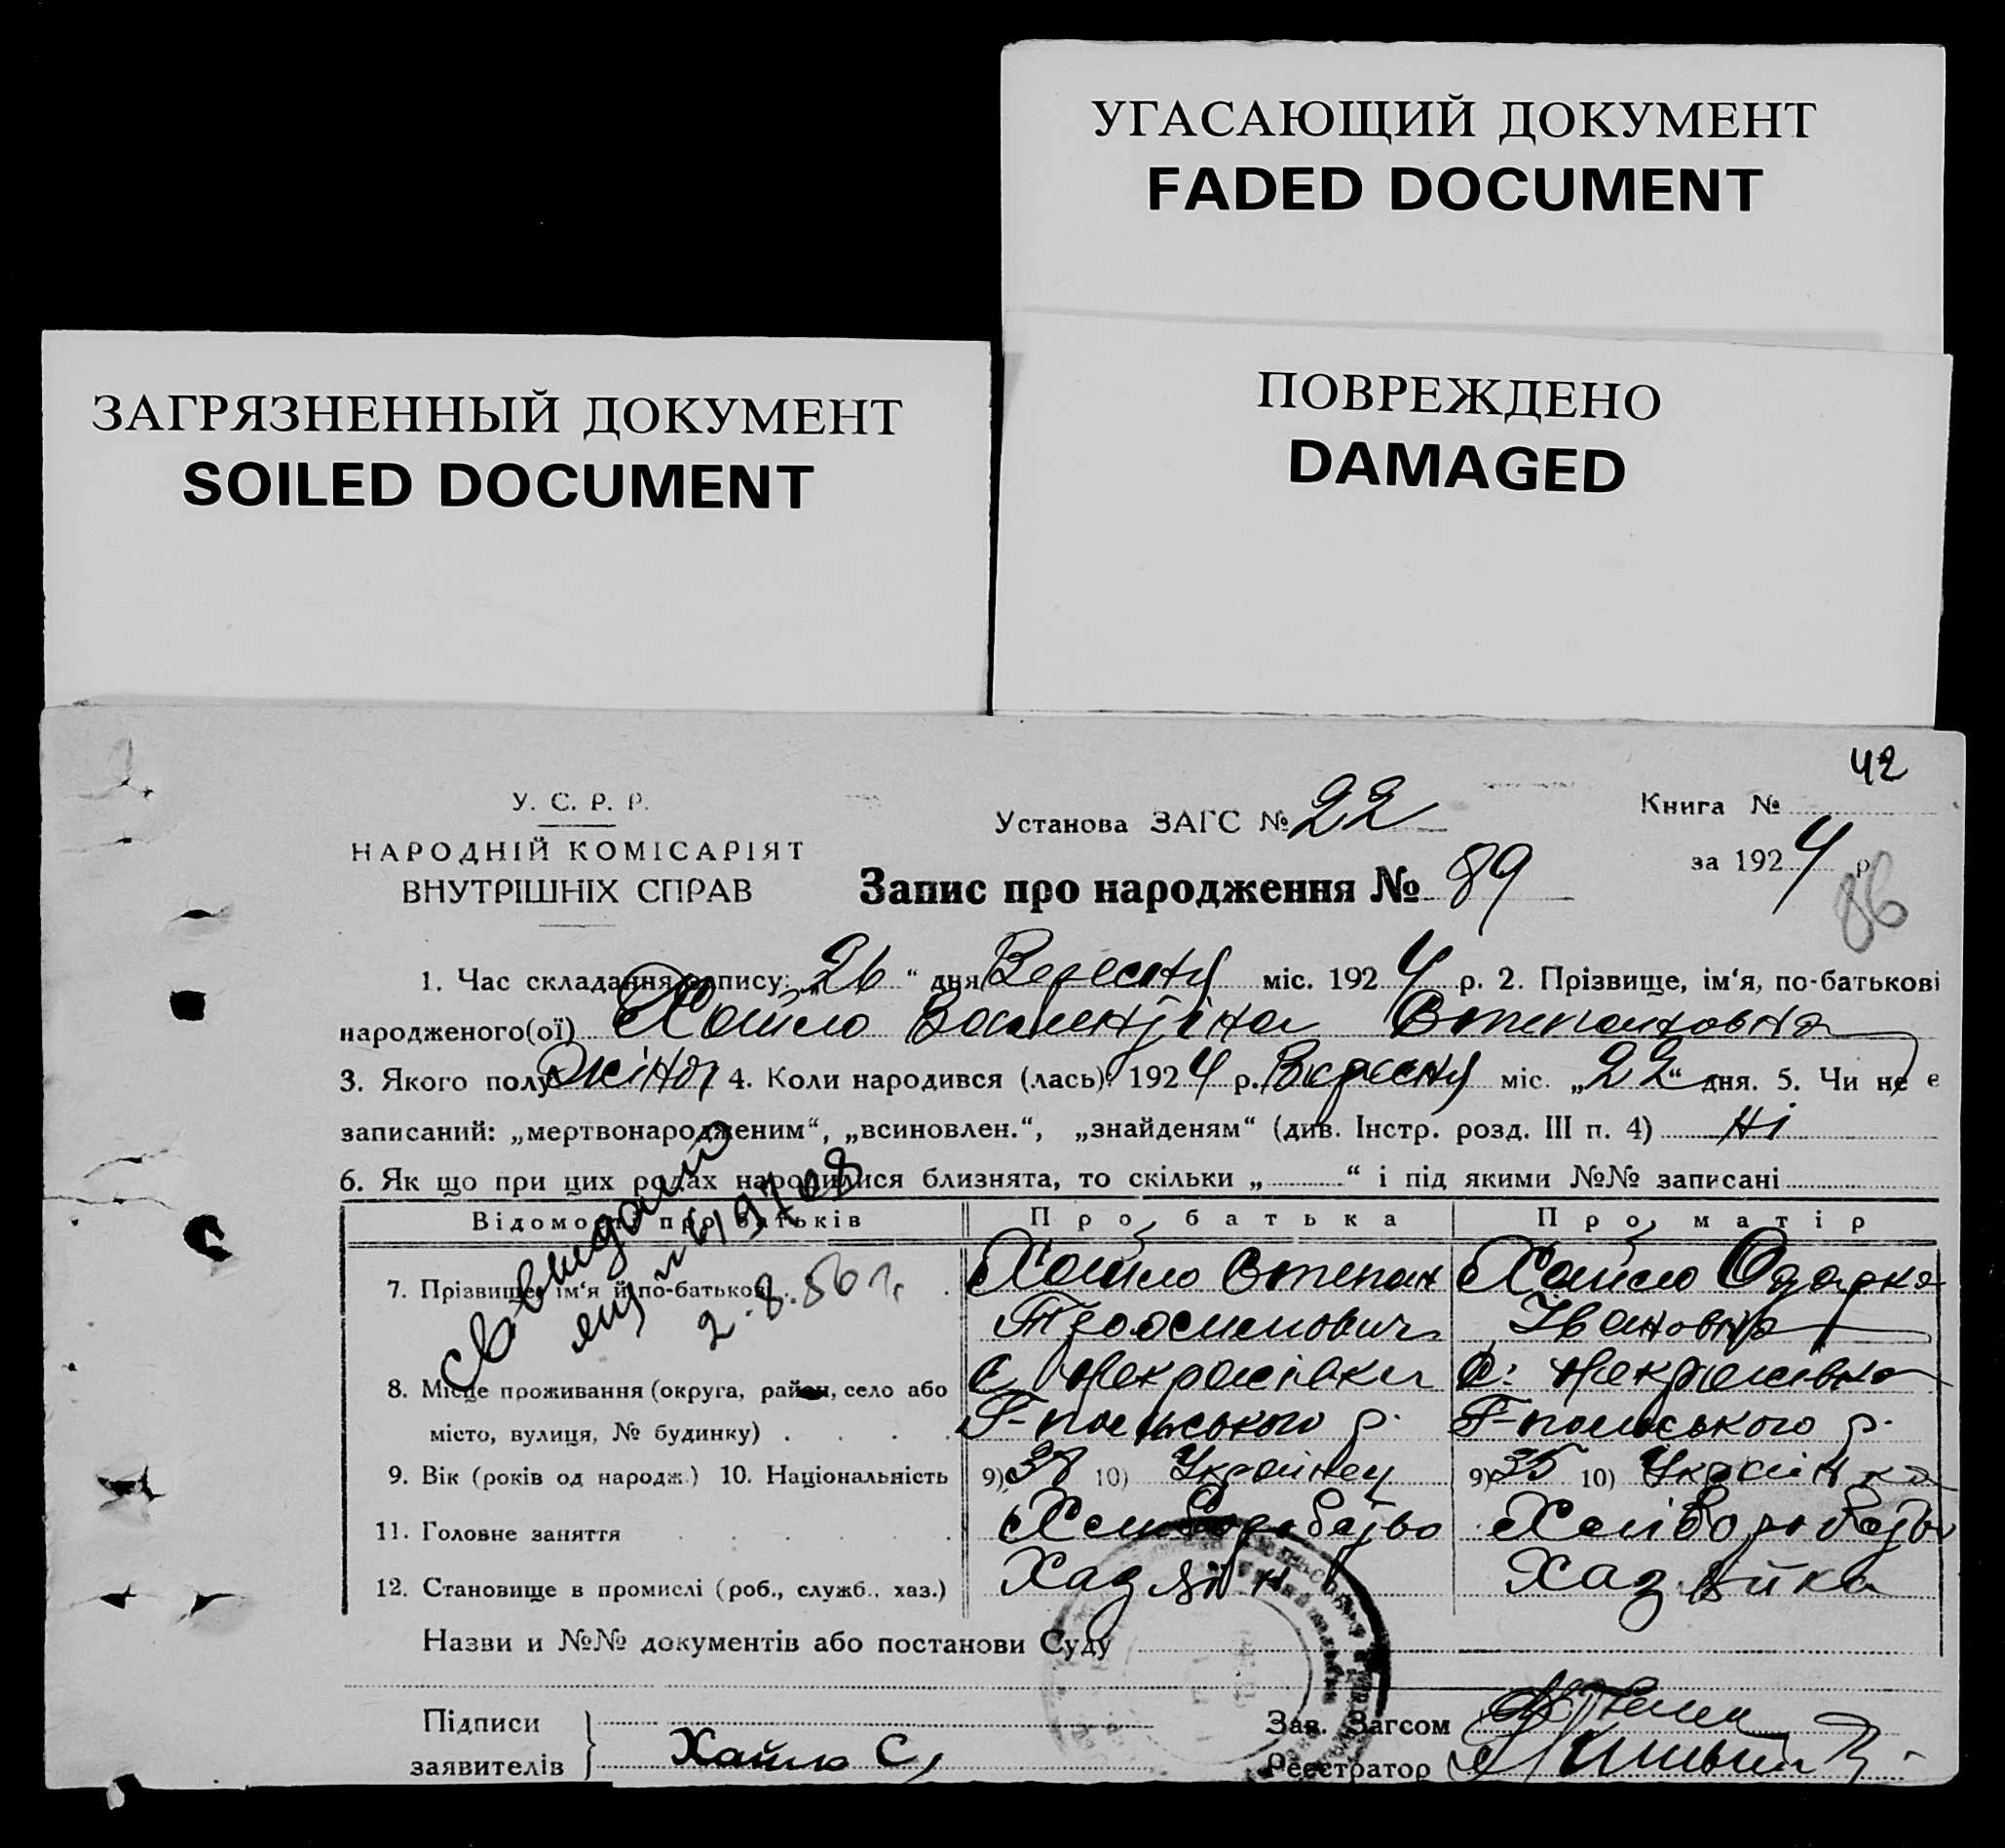 УГАСАЮЩИЙ ДОКУМЕНТ
FADED DOCUMENT
ЗАГРЯЗНЕННЫЙ ДОКУМЕНТ
SOILED DOCUMENT
ПОВРЕЖДЕНО
DAMAGED
42
У. С. Р. Р.
НАРОДНІЙ КОМІСАРІЯТ
ВНУТРІШНІХ СПРАВ
Установа ЗАГС № 22
Запис про народження № 89
Книга №
за 1924 р.
86
1. Час складання запису: „26“ дня Вересня міс. 1924 р. 2. Прізвище, ім‘я, по-батькові
народженого(ої) Хайло Валентіна Степановна
3. Якого полу жіноч 4. Коли народився (лась): 1924 р. Вересня міс. „22“ дня. 5. Чи не є
записаний: „мертвонародженим“, „всиновлен.“, „знайденям“ (див. Інстр. розд. III п. 4) ні
6. Як що при цих родах народилися близнята, то скільки „ “ і під якими №№ записані
Відомости про батьків Про батька Про матір
7. Прізвище, ім‘я й по-батькові Хайло Степан Хайло Одарка
Івановна
8. Місце проживання (округа, район, село або с. Некрасівки с. Некрасівка
місто, вулиця, № будинку) Г-польського р. Г-польського р.
9. Вік (років од народж.) 10. Національність 9) 38 10) Українец 9) 35 10) Українка
11. Головне заняття Хліборобство Хліборобство
12. Становище в промислі (роб., служб., хаз.) Хазяїн Хазяйка
2.8.56 г.
Назви и №№ документів або постанови Суду
Підписи
заявителів Хайло С,
Зав. Загсом
Реєстратор